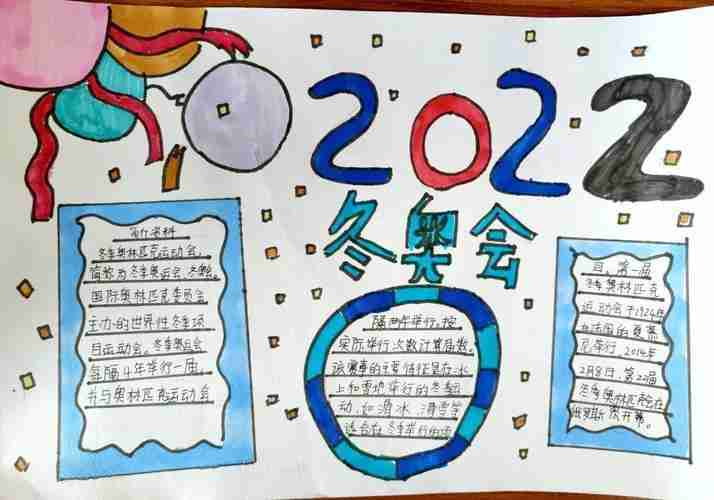 2022
冬奥会
冬季奥林匹克运动会,
简称为冬季奥运会、冬奥会
国际奥林匹克委员会
主办的世界性冬季项
目运动会。冬季奥运会
每隔4年举行一届,
并与奥林匹克运动会
隔两年举行,按
实际举行次数计算届数。
该赛事的主要特征是在冰
上和雪地举行的冬季运
动,如滑冰、滑雪等
适合在冬季举行的项
目。第一届
冬季奥林匹克
运动会于1924年
在法国的夏慕
尼举行,2014年
2月8日,第22届
冬季奥林匹克会在
俄罗斯索开幕。